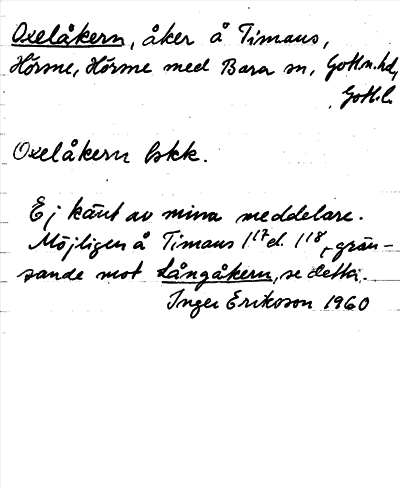 Oxelåkern, åker å Timans,
Hörsne, Hörsne med Bara sn, Gotl.n.hd,
Gotl.l.
Oxelåkern bskk.
Ej känt av mina meddelare.
Möjligen å Timans 1¹⁷ el. 1¹⁸, grän-
sande mot Långåkern, se detta.
Inger Erikson 1960